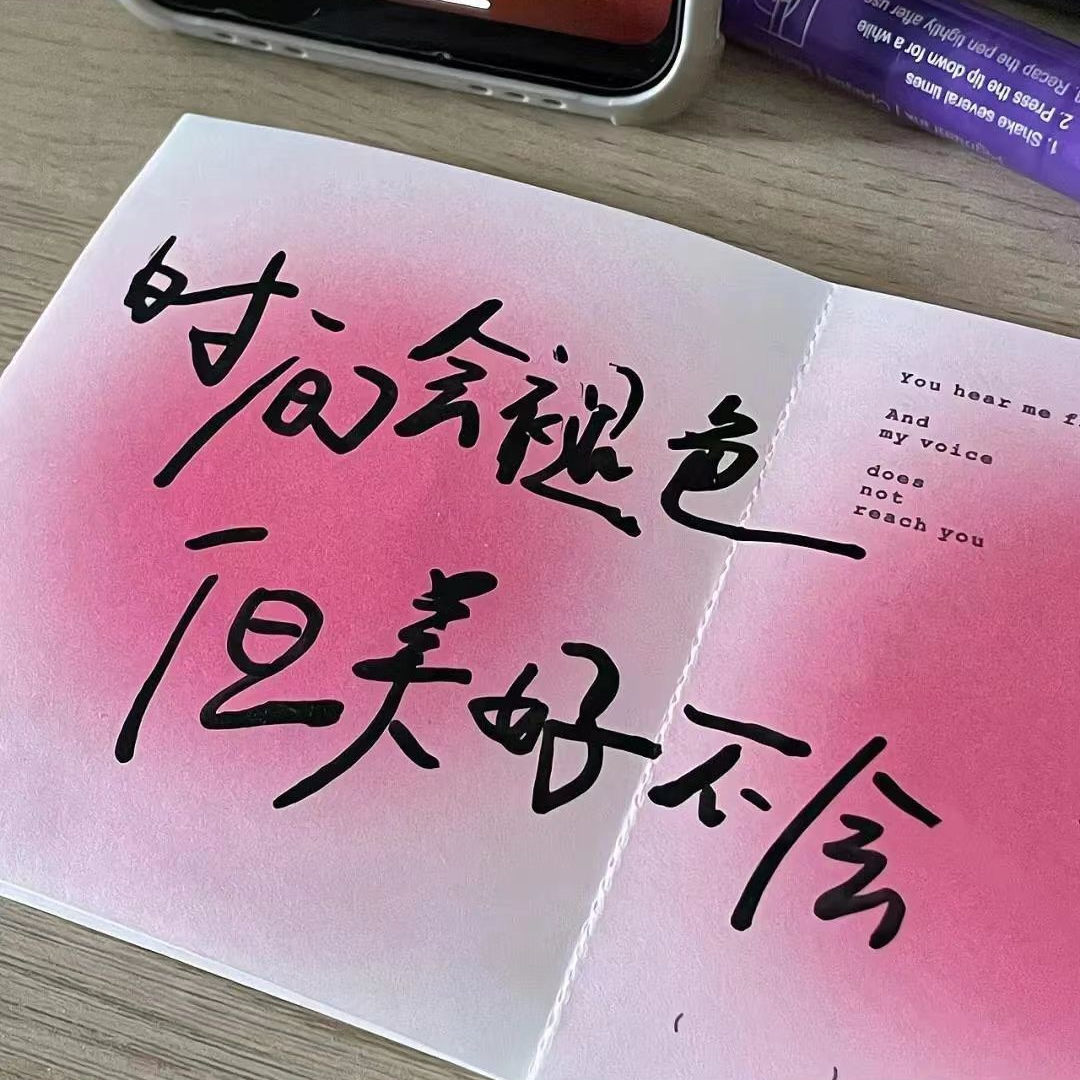 时间会褪色
但美好不会
You hear me
And
my voice
does
not
reach you
1. Shake several times
2. Press the tip down for a while
Recap the pen tightly after use